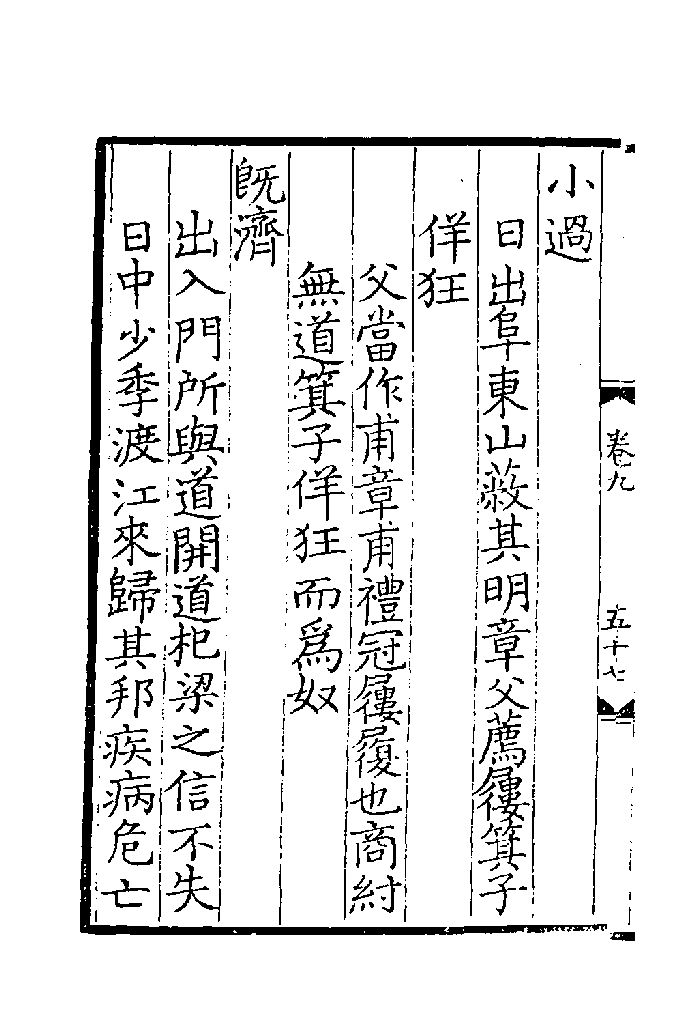 小過
日出阜東山蔽其明章父薦屨箕子
佯狂
父當作甫章甫禮冠屨履也商紂
無道箕子佯狂而爲奴
旣濟
出入門所與道開道杞梁之信不失
日中少季渡江來歸其邦疾病危亡
卷九
五十七